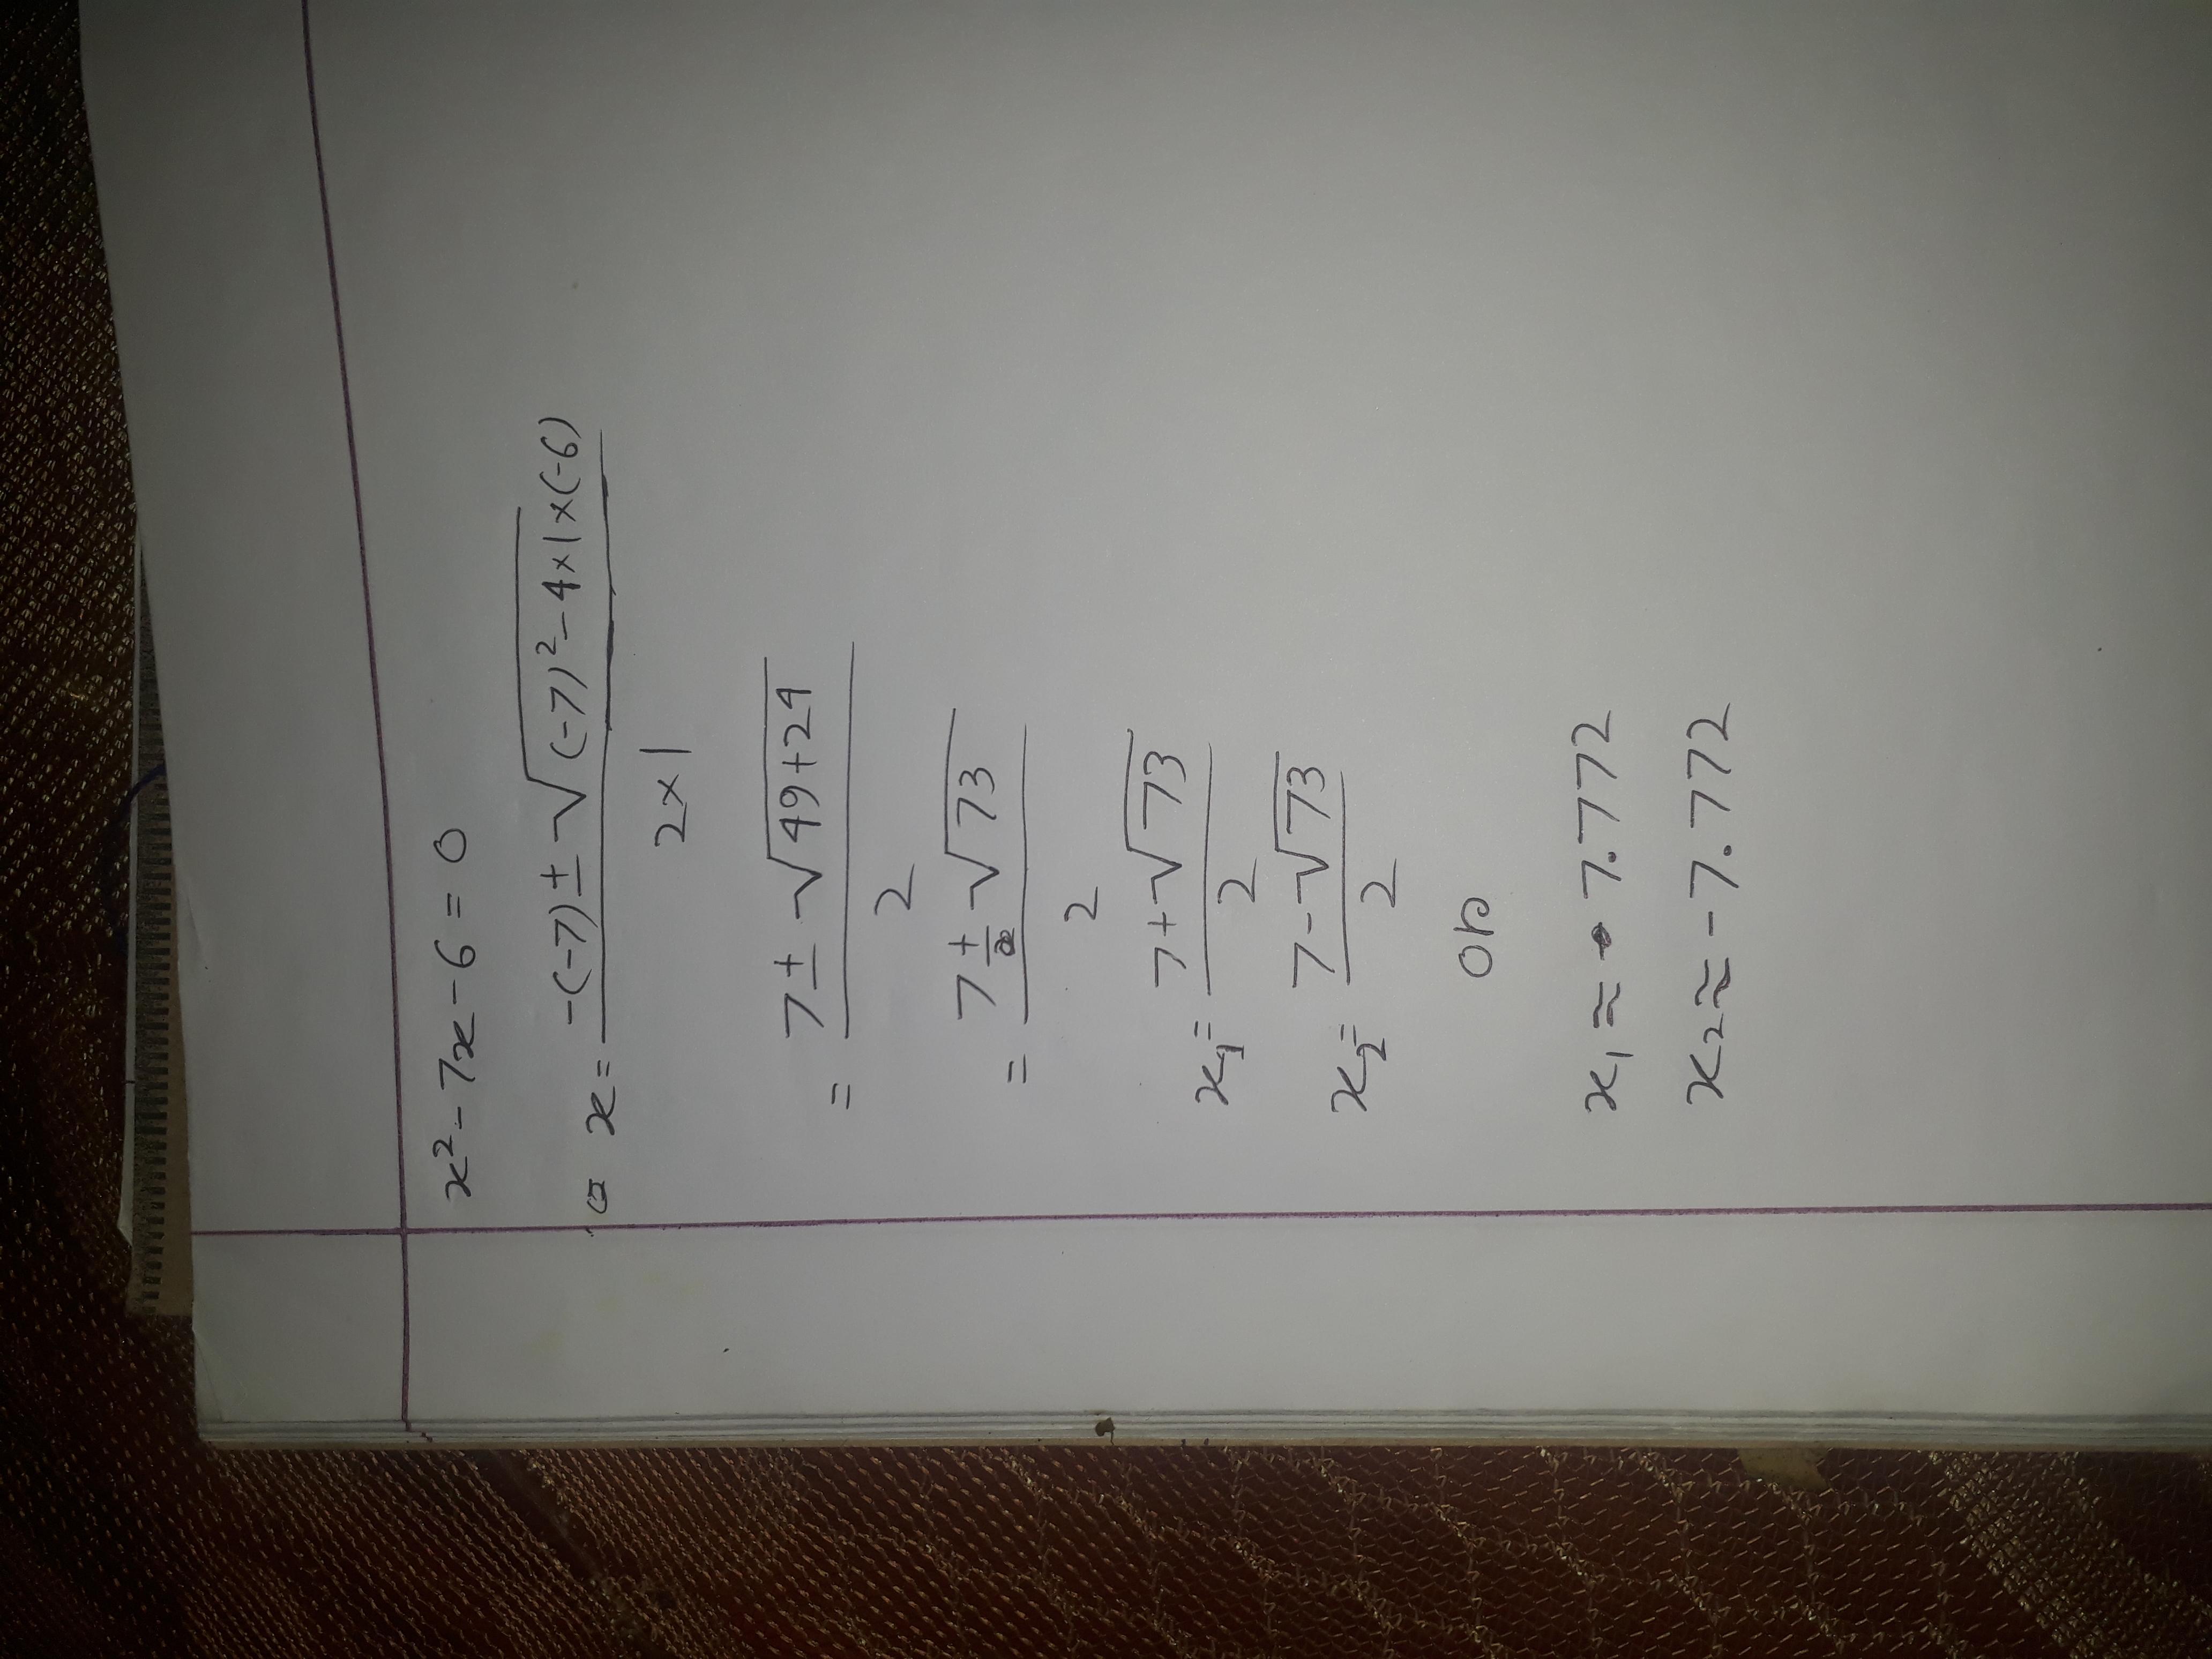 x² - 7x - 6 = 0
x = -(-7) ± √(-7)² - 4×1×(-6)
2×1
= 7 ± √49+24
2
= 7 ± √73
2
x₁ = 7+√73
2
x₂ = 7-√73
2
or
x₁ ≈ 7.772
x₂ ≈ -7.772